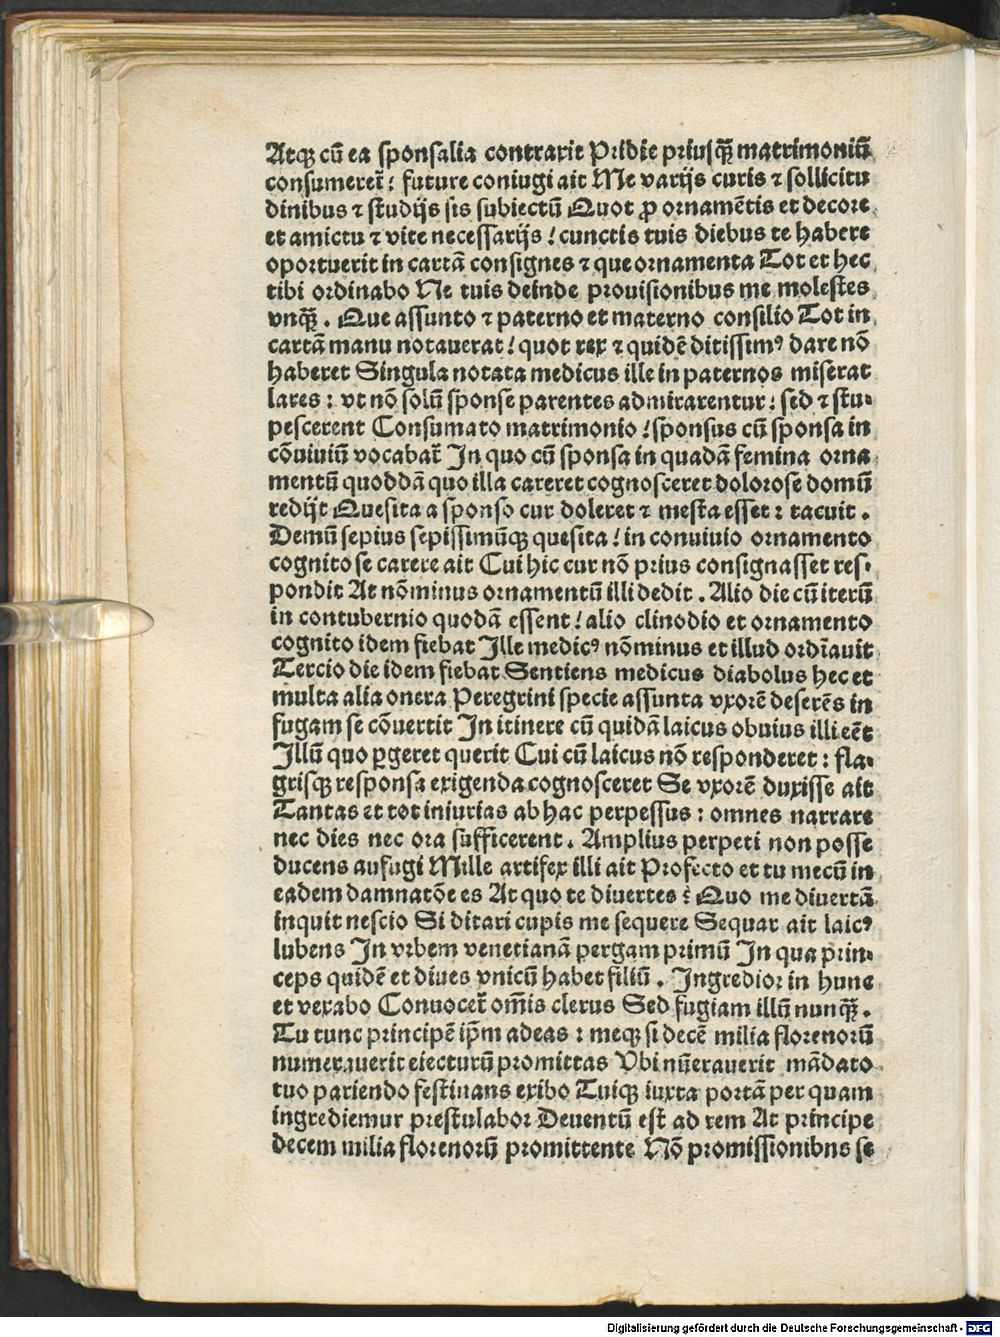 Atqꝫ cū ea sponsalia contraxit Pridie priusqꝫ̄ matrimoniū
consumeret̄ : future coniugi ait Me varijs curis ⁊ sollicitu
dinibus ⁊ studijs sis subiectū Quot ꝓ ornamētis et decore
et amictu ⁊ vite necessarijs : cunctis tuis diebus te habere
oportuerit in cartā consignes ⁊ que ornamenta Tot et hec
tibi ordinabo Ne tuis deinde prouisionibus me molestes
vnqꝫ̄ . Que assunto ⁊ paterno et materno consilio Tot in
cartā manu notauerat : quot rex ⁊ quidē ditissimꝰ dare nō
haberet Singula notata medicus ille in paternos miserat
lares : vt nō solū sponse parentes admirarentur : sed ⁊ stu-
pescerent Consumato matrimonio : sponsus cū sponsa in
cōuiuiū vocabat̄ In quo cū sponsa in quadā femina orna
mentū quoddā quo illa careret cognosceret dolorose domū
redijt Quesita a sponso cur doleret ⁊ mesta esset : tacuit .
Demū sepius sepissimūqꝫ quesita : in conuiuio ornamento
cognito se carere ait Cui hic cur nō prius consignasset res-
pondit At nōminus ornamentū illi dedit . Alio die cū iterū
in contubernio quodā essent : alio clinodio et ornamento
cognito idem fiebat Ille medicꝰ nōminus et illud ordīauit
Tercio die idem fiebat Sentiens medicus diabolus hec et
multa alia onera Peregrini specie assunta vxorē deserēs in
fugam se cōuertit In itinere cū quidā laicus obuius illi eēt
Illū quo ꝑgeret querit Cui cū laicus nō responderet : fla-
grisqꝫ responsa exigenda cognosceret Se vxorē duxisse ait
Tantas et tot iniurias ab hac perpessus : omnes narrare
nec dies nec ora sufficerent . Amplius perpeti non posse
ducens aufugi Mille artifex illi ait Profecto et tu mecū in
eadem damnatōe es At quo te diuertes ? Quo me diuertā
inquit nescio Si ditari cupis me sequere Sequar ait laicꝰ
lubens In vrbem venetianā pergam primū In qua prin-
ceps quidē et diues vnicū habet filiū . Ingredior in hunc
et vexabo Conuocet̄ om̄is clerus Sed fugiam illū nunqꝫ̄ .
Tu tunc principē ip̄m adeas : meqꝫ si decē milia florenorū
numerauerit eiecturū promittas Vbi nūerauerit mādato
tuo pariendo festinans exibo Tuiqꝫ iuxta portā per quam
ingrediemur prestulabor Deuentū est ad rem At principe
decem milia florenorū promittente Nō promissionibns se
Digitalisierung gefördert durch die Deutsche Forschungsgemeinschaft - DFG